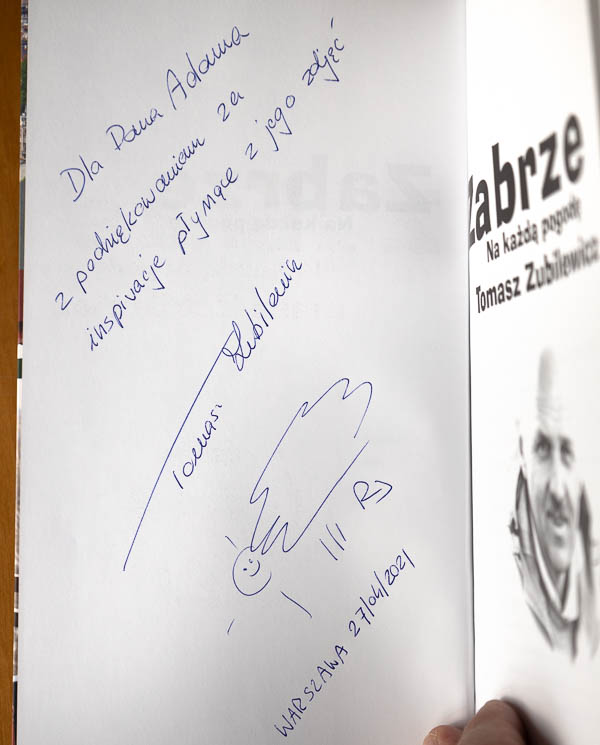 Dla Pana Adama
z podziękowaniem za
inspirację płynące z jego zdjęć
Tomasz Zubilewicz
RJ
WARSZAWA 27/04/2021
Zabrze
Na każdą pogodę
Tomasz Zubilewicz